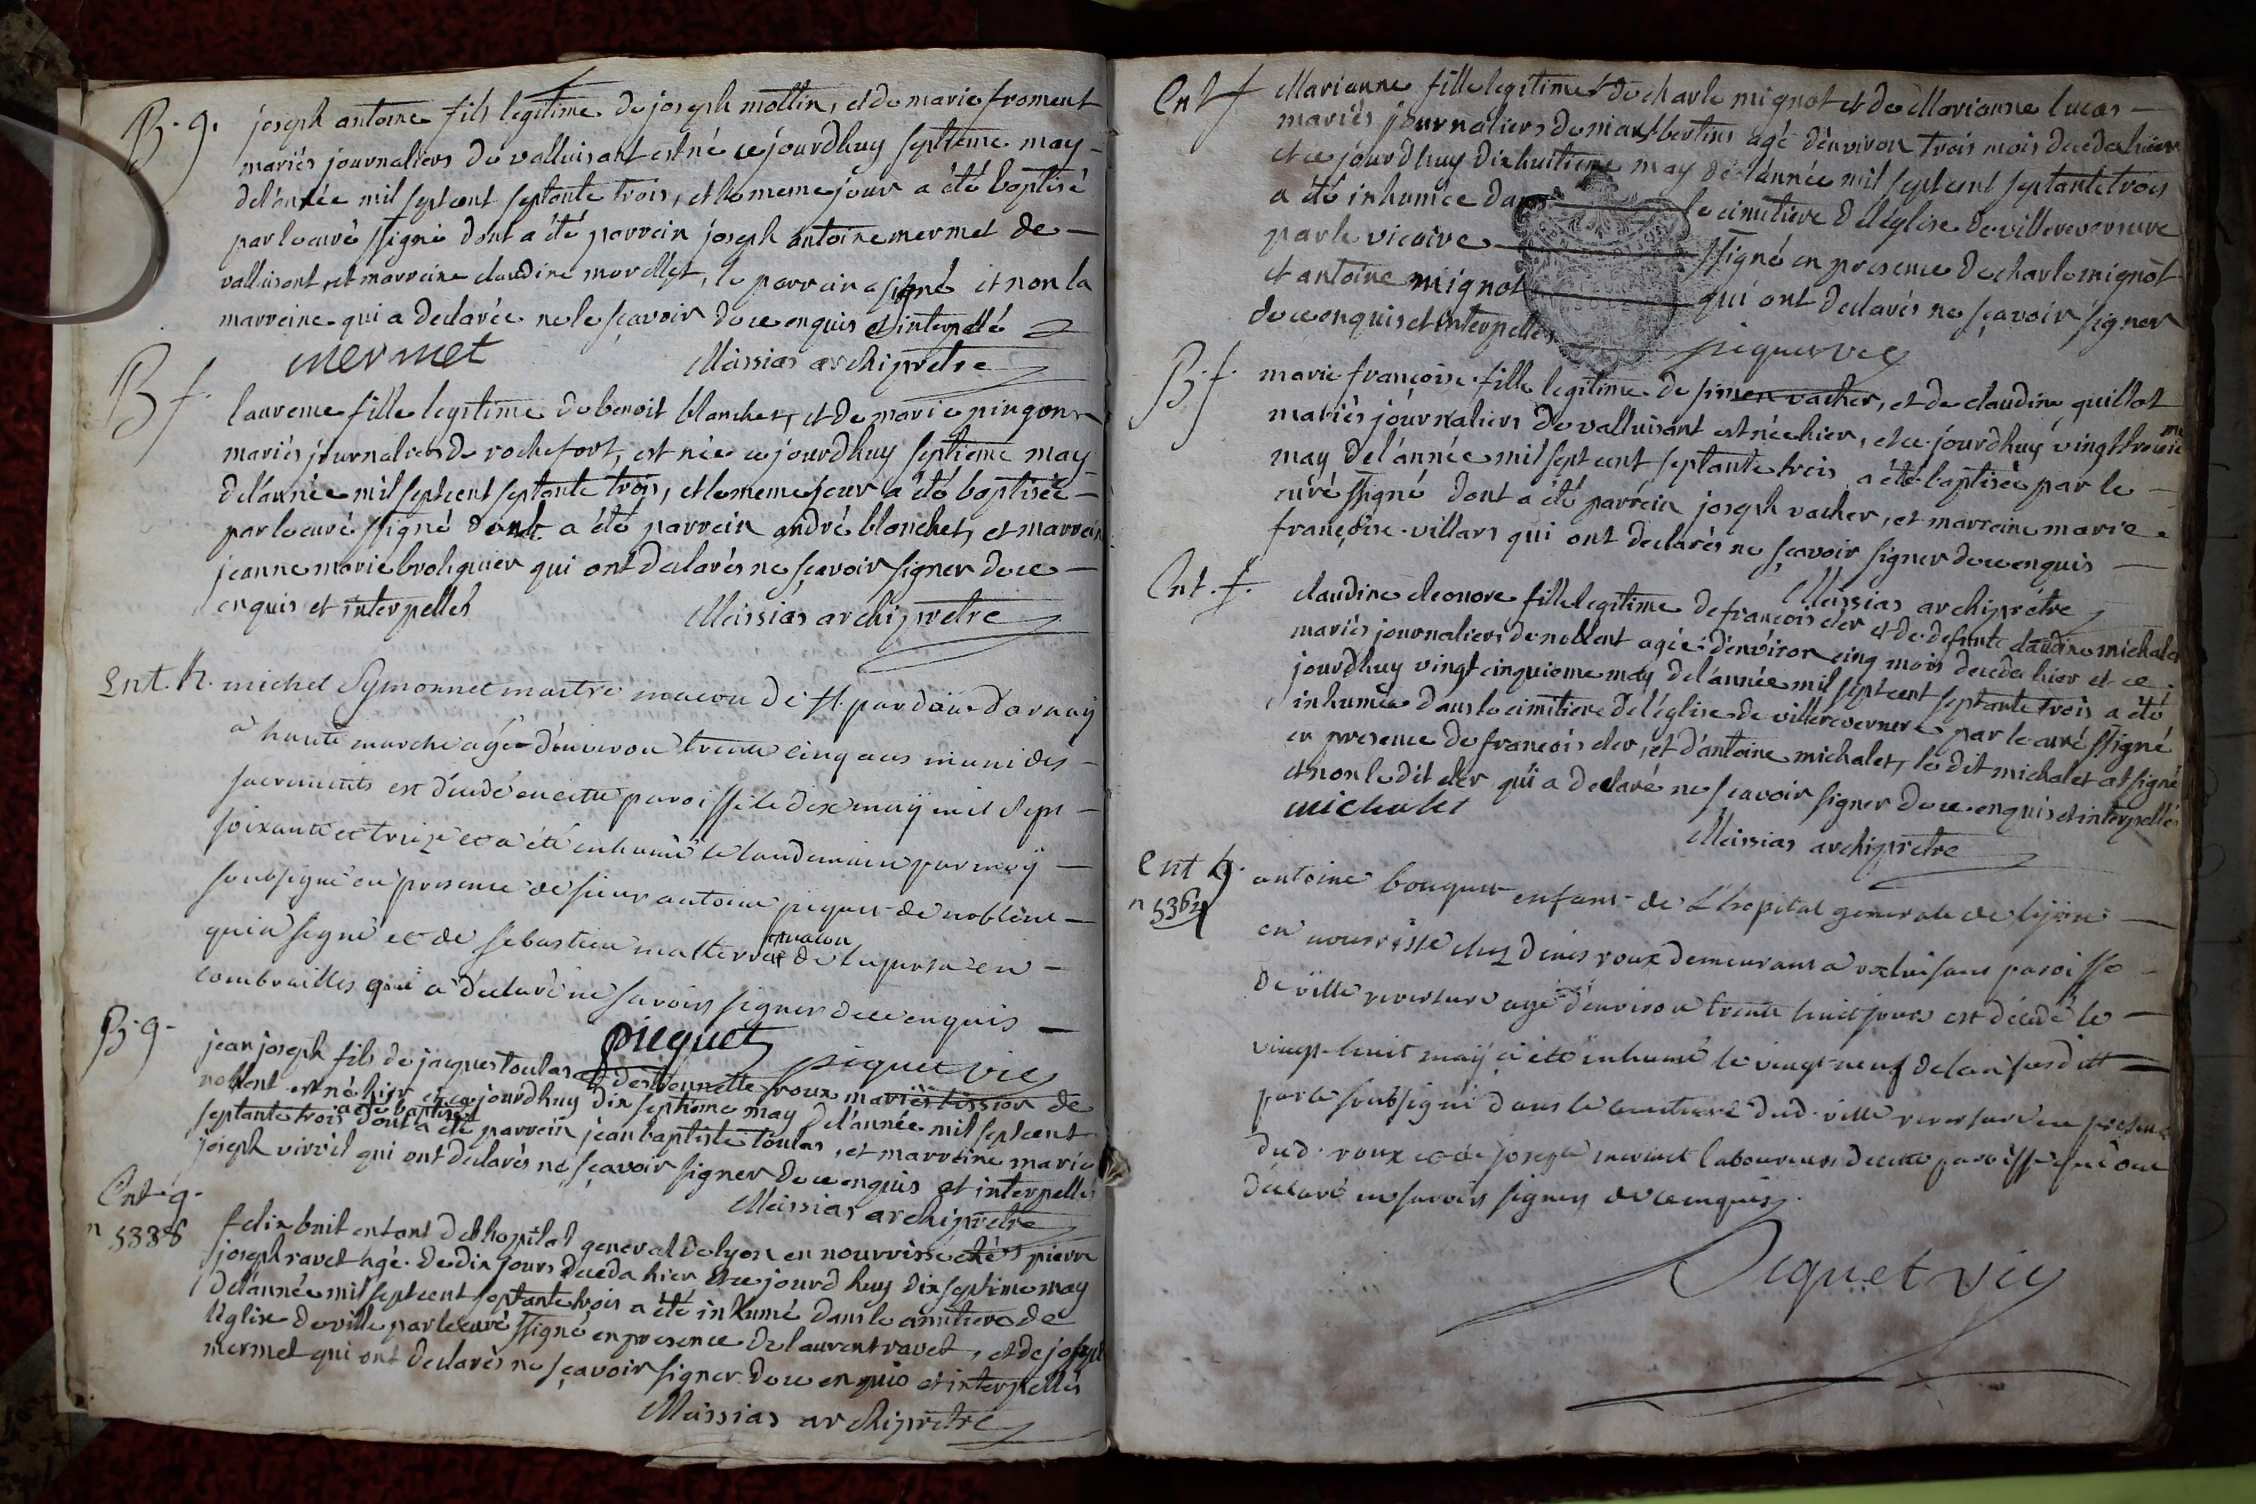 B. g. joseph antoine fils legitime de joseph mottin, et de marie froment
mariés journaliers de valluisant est né ce jourdhuy septieme may
de l'année mil sept cent septante trois, et le meme jour a été baptisé
par le curé ssigné dont a été parrein joseph antoine mermet de
valluisant, et marreine claudine morellet, le parrein a signé et non la
marreine qui a declarée ne le sçavoir de ce enquis et interpellé
mermet Messias archipretre
B f. laureme fille legitime de benoit blanchet, et de marie pingon
mariés journaliers de rochefort, est née ce jourdhuy septieme may
de l'année mil sept cent septante trois, et le meme jour a été baptisée
par le curé ssigné dont a été parrein andré blanchet, et marrein
jeanne marie broliquier qui ont declarés ne sçavoir signer de ce
enquis et interpellés Messias archipretre
Ent. h. michel Symonnet maitre macon de st. pardoux d'arnay
a haute marche agé d'environ trente cinq ans muni des
sacrements est décédé en cette paroisse le dix may mil sept
soixante et treize et a été inhumé le landemain par moy
soubsigné en presence de sieur antoine piquet de noblent
qui a signé et de sebastien malterre macon de lupersa en
combrailles qui a déclaré ne savoir signer de ce enquis
picquet piquet vic
B. g. jean joseph fils de jacques toulas et de Bennette roux mariés tissier de
noblent est né hier et ce jourdhuy dix septieme may de l'année mil sept cent
septante trois a été baptisé dont a été parrein jean baptiste toulas, et marreine marie
joseph vivril qui ont declarés ne sçavoir signer de ce enquis et interpellés
Messias archipretre
Ent. g. felix bnit enfant de l'hopital general de lyon en nourrisse chés pierre
n 5338 joseph ravet agé de dix jours deceda hier et ce jourd huy dix septime may
de l'année mil sept cent septante trois a été inhumé dans le cimitiere de
l'église de ville par le curé ssigné en presence de laurent ravet, et de joseph
mermet qui ont declarés ne sçavoir signer de ce enquis et interpellés
Messias archipretre
Ent f Marianne fille legitime de charle mignot et de Marianne lucas
mariés journaliers de niart bertins agé d'environ trois mois deceda hier
et ce jourdhuy dix huitieme may de l'année mil sept cent septante trois
a été inhumée dans le cimitiere de l'église de villereversure
par le vicaire ssigné en presence de charle mignot
et antoine mignot qui ont declarés ne sçavoir signer
de ce enquis et interpellés piquet vic
B. f. marie françoise fille legitime de simon vacher, et de claudine guillot
mariés journaliers de valluisant est née hier, et ce jourdhuy vingt troisieme
may de l'année mil sept cent septante trois a été baptisée par le
curé ssigné dont a été parrein joseph vacher, et marreine marie
françoise villars qui ont declarés ne sçavoir signer de ce enquis
Messias archiprétre
Ent. f. claudine eleonore fille legitime de francois cler et de defunte claudine michalet
mariés journaliers de noblent agée d'environ cinq mois deceda hier et ce
jourdhuy vingt cinquieme may de l'année mil sept cent septante trois a été
inhumée dans le cimitiere de l'église de villereversure par le curé ssigné
en presence de francois cler, et d'antoine michalet, le dit michalet at signé
et non le dit cler qui a declaré ne sçavoir signer de ce enquis et interpellés
michalet Messias archipretre
Ent g. antoine bouquet enfant de L'hopital generale de lyon
n 5362 en nourrisse chez denis roux demeurant a valuisant paroisse
de ville reversure agé d'environ trente huit jours est décédé le
vingt-huit may a été inhumé le vingt-neuf de l'an susdit
par le soubsigné dans le cimitiere dud. ville reversure en presence
dud. roux et de joseph mermet laboureurs de cette paroisse qui ont
déclaré ne savoir signer de ce enquis.
Piquet vic